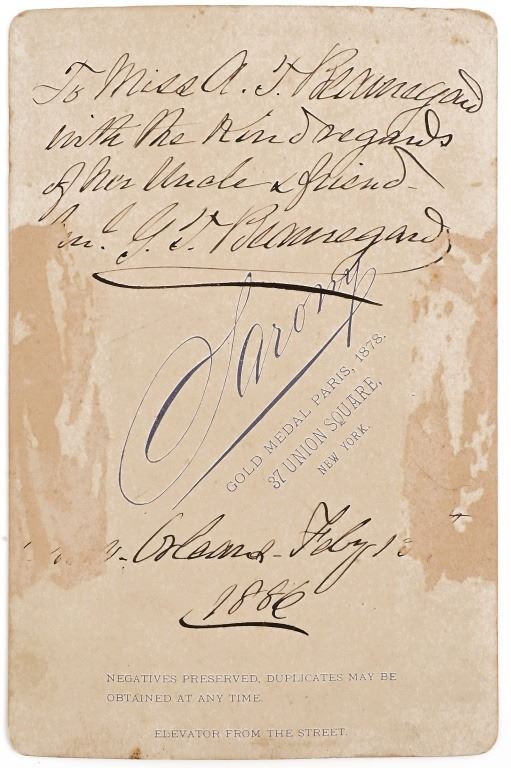 To Miss A. T. Beauregard
with the kind regards
of her Uncle & friend
G. T. Beauregard
Sarony
GOLD MEDAL PARIS, 1878.
37 UNION SQUARE,
NEW YORK.
Orleans - Feby
1886
NEGATIVES PRESERVED, DUPLICATES MAY BE
OBTAINED AT ANY TIME.
ELEVATOR FROM THE STREET.